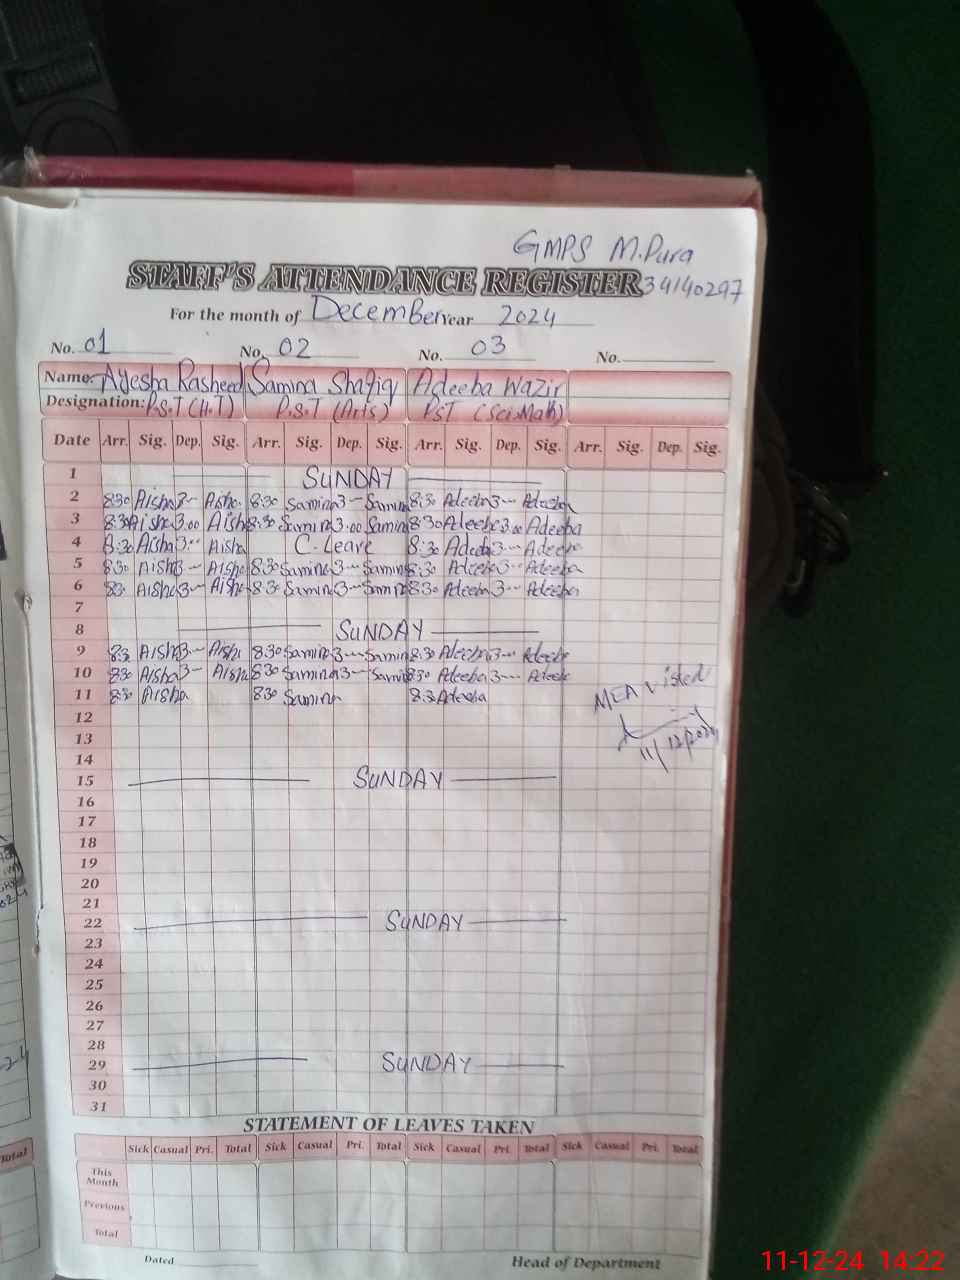 GMPS M.Pura
STAFF'S ATTENDANCE REGISTER 34140297
For the month of December Year 2024
No. 01 No. 02 No. 03 No.
Name: Ayesha Rasheed Samina Shafiq Adeeba Wazir
Designation: P.S.T (H.T) P.S.T (Arts) PST (Sci.Math)
Date Arr. Sig. Dep. Sig. Arr. Sig. Dep. Sig. Arr. Sig. Dep. Sig. Arr. Sig. Dep. Sig.
1 SUNDAY
2 8:30 Aisha 3-- Aisha 8:30 Samina 3-- Samina 8:30 Adeeba 3-- Adeeba
3 8:30 Aisha 3.00 Aisha 8:30 Samina 3.00 Samina 8:30 Adeeba 3.00 Adeeba
4 8:30 Aisha 3.. Aisha C.Leave 8:30 Adeeba 3-- Adeeba
5 8:30 Aisha 3-- Aisha 8:30 Samina 3-- Samina 8:30 Adeeba 3-- Adeeba
6 8:30 Aisha 3-- Aisha 8:30 Samina 3-- Samina 8:30 Adeeba 3-- Adeeba
7
8 SUNDAY
9 8:3 Aisha 3-- Aisha 8:30 Samina 3-- Samina 8:30 Adeeba 3-- Adeeba
10 8:30 Aisha 3-- Aisha 8:30 Samina 3-- Samina 8:30 Adeeba 3-- Adeeba
11 8:30 Aisha 8:30 Samina 8:30 Adeeba
MEA visted
11/12/2024
12
13
14
15 SUNDAY
16
17
18
19
20
21
22 SUNDAY
23
24
25
26
27
28
29 SUNDAY
30
31
STATEMENT OF LEAVES TAKEN
Sick Casual Pri. Total Sick Casual Pri. Total Sick Casual Pri. Total Sick Casual Pri. Total
This Month
Previous
Total
Dated Head of Department
Total
11-12-24 14:22